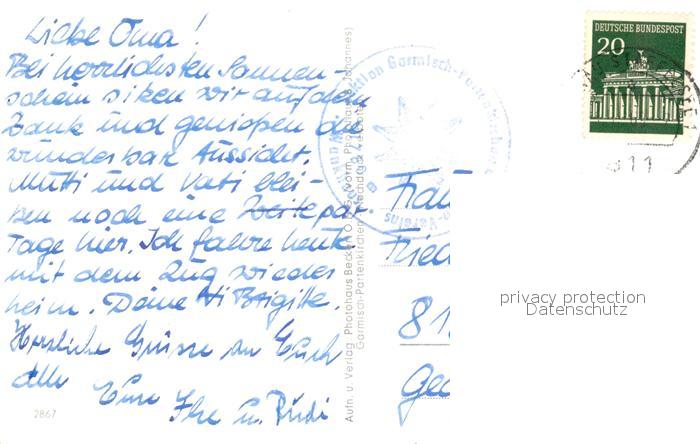 Liebe Oma!
Bei herrlichsten Sonnen-
schein sitzen wir auf dem
Bank und genießen die
wunderbar Aussicht.
Mutti und Vati blei-
ben noch eine Zeite par
Tage hier. Ich fahre heute
mit dem Zug wieder
heim. Deine Brigitte.
Herzliche Grüsse an Euch
alle Eure Ilse u. Rudi
2867
Aufn. u. Verlag Photohaus Beckert
Garmisch-Partenkirchen
Garmisch-Partenkirchen
DEUTSCHE BUNDESPOST
20
811
Frau
Fried
81
privacy protection
Datenschutz